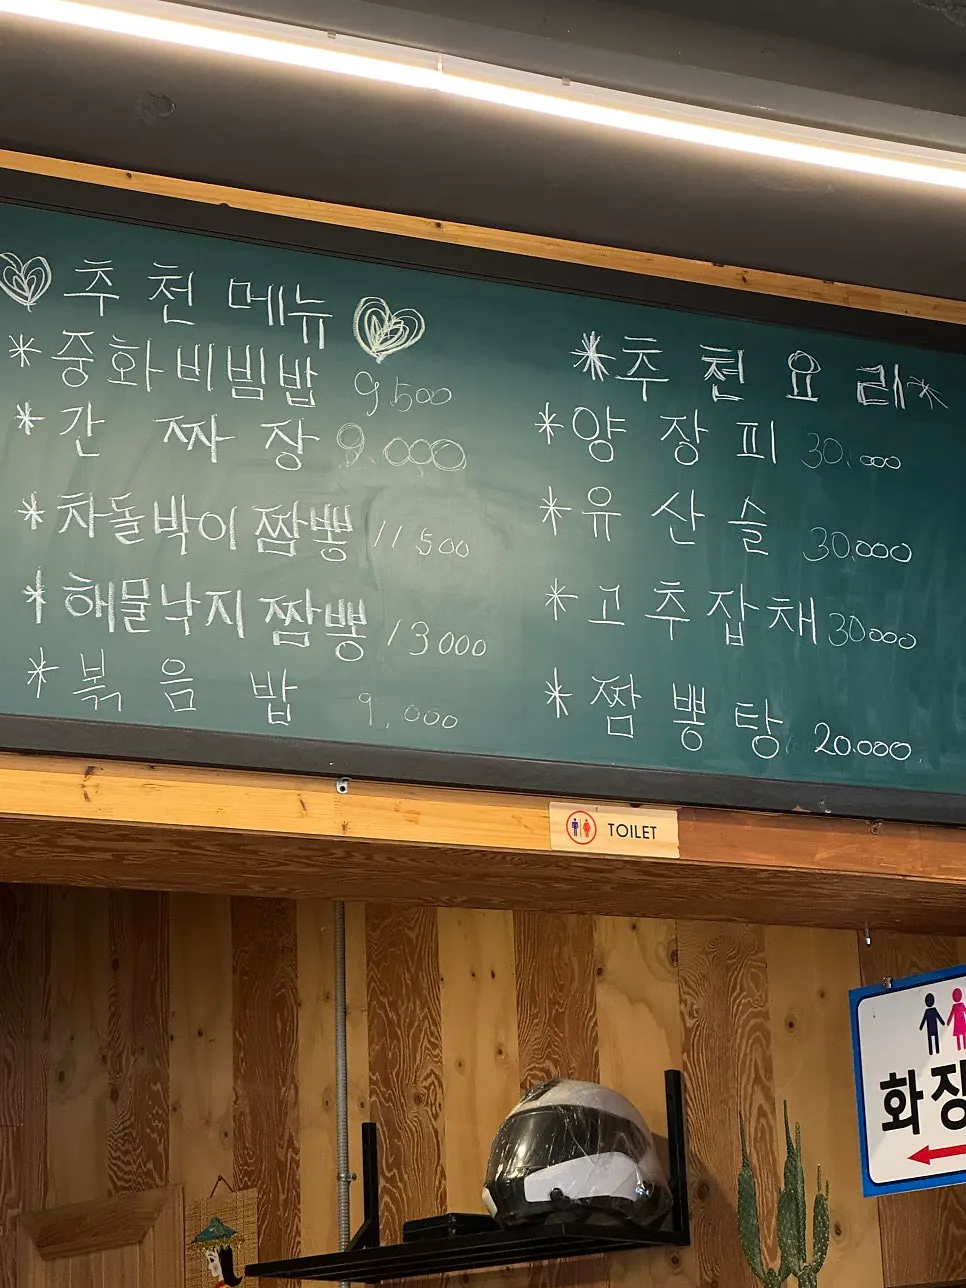 추천메뉴
*중화비빔밥 9,500
*간짜장 9.000
*차돌박이짬뽕 11500
*해물낙지짬뽕 13000
*볶음밥 9.000
*추천요리*
*양장피 30.000
*유산슬 30.000
*고추잡채 30000
*짬뽕탕 20.000
TOILET
화장